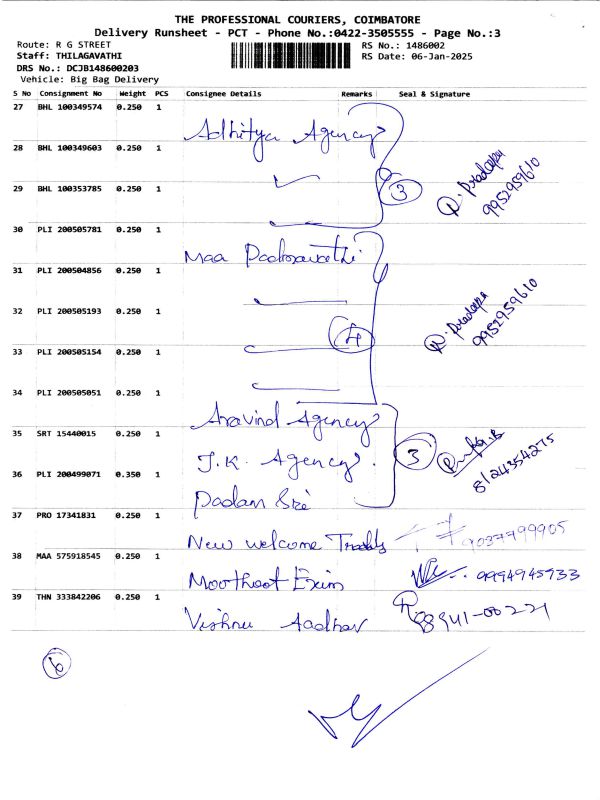 THE PROFESSIONAL COURIERS, COIMBATORE
Delivery Runsheet - PCT - Phone No.:0422-3505555 - Page No.:3
Route: R G STREET
Staff: THILAGAVATHI
DRS No.: DCJB148600203
Vehicle: Big Bag Delivery
RS No.: 1486002
RS Date: 06-Jan-2025
S No Consignment No Weight PCS Consignee Details Remarks Seal & Signature
27 BHL 100349574 0.250 1 Adhitya Agency
28 BHL 100349603 0.250 1
29 BHL 100353785 0.250 1
3
9952959610
30 PLI 200505781 0.250 1 Maa Padmavathi
31 PLI 200504856 0.250 1
32 PLI 200505193 0.250 1
33 PLI 200505154 0.250 1
4
9952959610
34 PLI 200505051 0.250 1 Aravind Agency
35 SRT 15440015 0.250 1 J.K. Agency.
36 PLI 200499071 0.350 1 Padam Sre
3
8124354275
37 PRO 17341831 0.250 1 New welcome
38 MAA 575918545 0.250 1 Moothoot Exim 9994945933
39 THN 333842206 0.250 1 Vishnu Aadhav 88941-00221
6